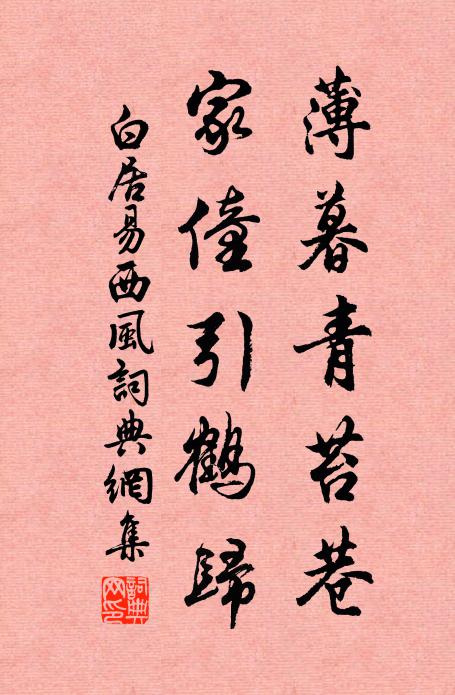 薄暮青苔巷
家僮引鶴歸
白居易西風詞典網集
詞典網印